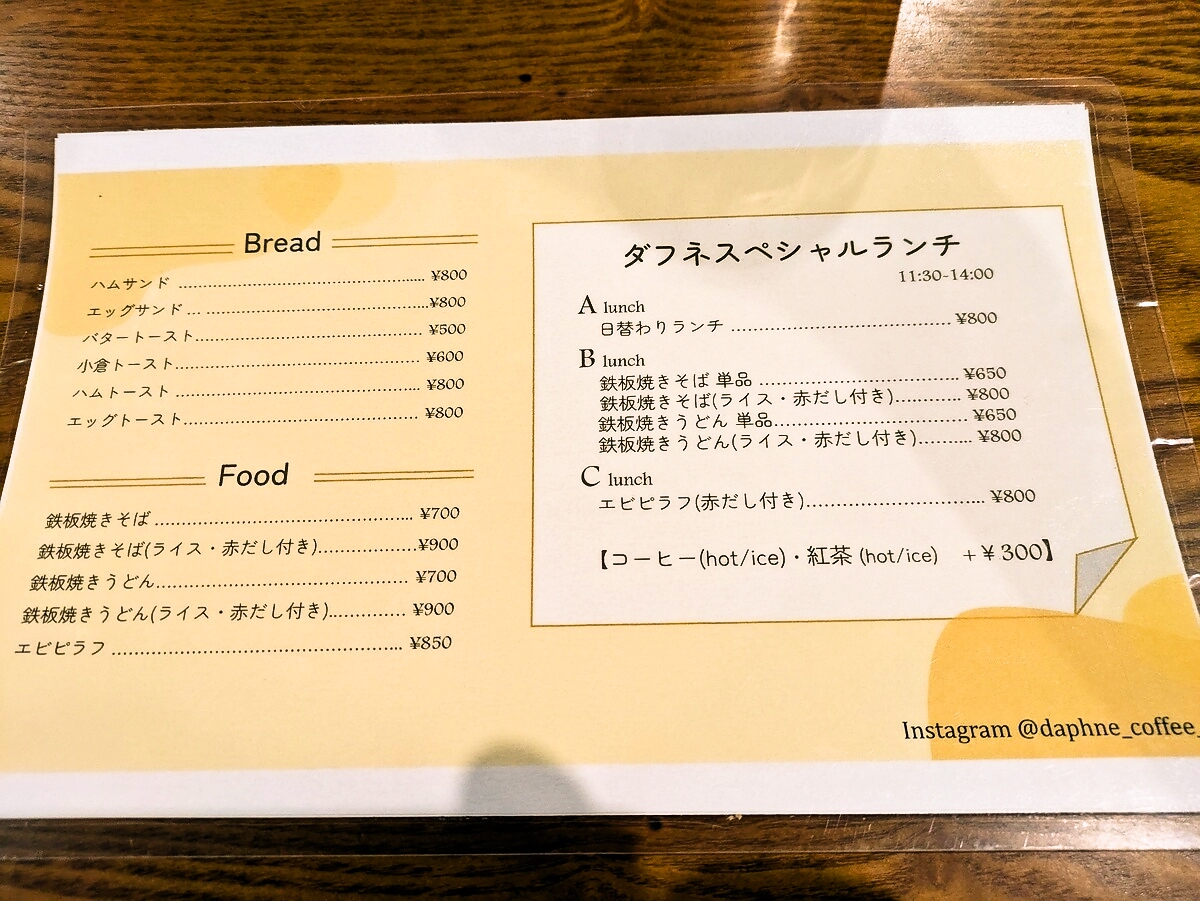 Bread
ハムサンド ............................................ ¥800
エッグサンド ... ........................................¥800
バタートースト........................................ ¥500
小倉トースト........................................... ¥600
ハムトースト ........................................... ¥800
エッグトースト......................................... ¥800
Food
鉄板焼きそば ............................................. ¥700
鉄板焼きそば(ライス・赤だし付き).................¥900
鉄板焼きうどん............................................ ¥700
鉄板焼きうどん(ライス・赤だし付き)............. ¥900
エビピラフ .................................................. ¥850
ダフネスペシャルランチ
11:30-14:00
A lunch
日替わりランチ ...................................... ¥800
B lunch
鉄板焼きそば 単品 ................................... ¥650
鉄板焼きそば(ライス・赤だし付き)............ ¥800
鉄板焼きうどん 単品................................. ¥650
鉄板焼きうどん(ライス・赤だし付き).......... ¥800
C lunch
エビピラフ(赤だし付き)............................... ¥800
【コーヒー(hot/ice)・紅茶 (hot/ice) +¥300】
Instagram @daphne_coffee_